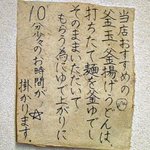 当店おすすめの
釜玉・釜揚げうどんは
打ちたて麺を釜ゆでし
そのままいただいて
もらう為にゆで上がりに
10分少々のお時間が
掛かります。